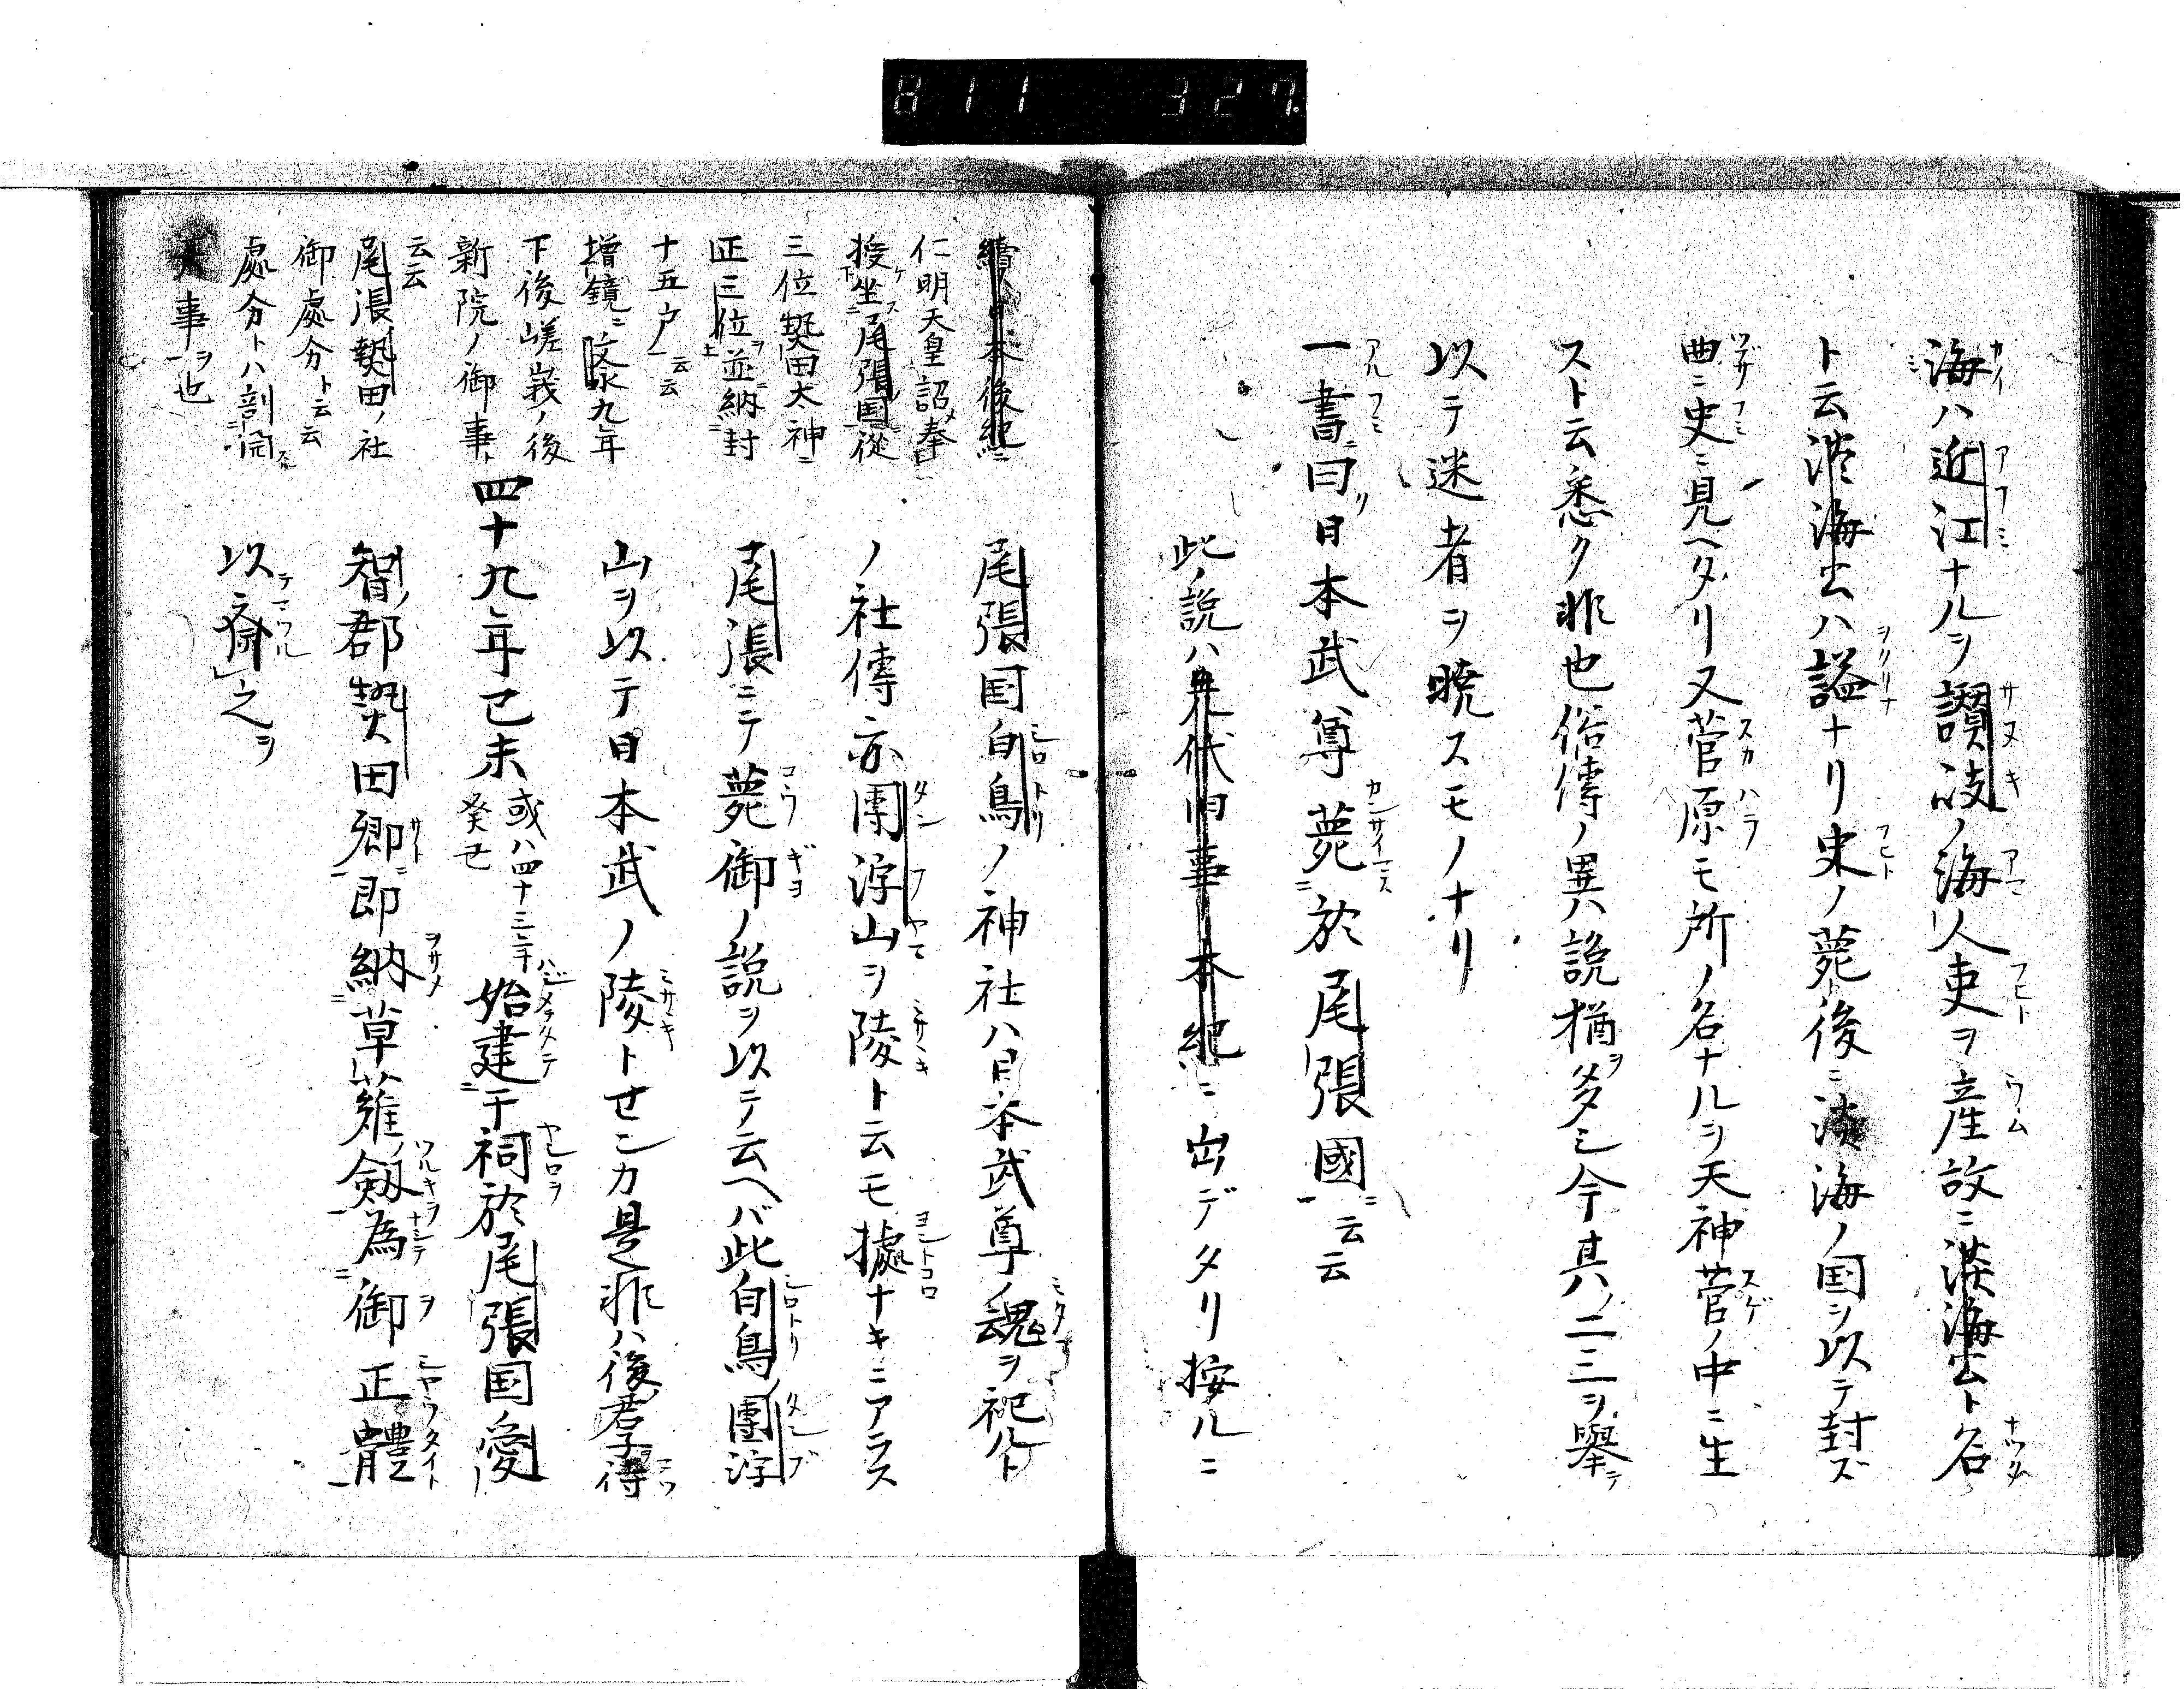 811 327.
海ハ近江ナルヲ讃岐ノ海人吏ヲ産故ニ淡海公ト名
ト云淡海公ハ諡ナリ史ノ薨後ニ淡海ノ国ヲ以テ封ズ
典ニ史ニ見ヘタリ又菅原モ所ノ名ナルヲ天神菅ノ中ニ生
スト云悉ク非也俗傳ノ異説猶多シ今其ノ二三ヲ舉テ
以テ迷者ヲ暁スモノナリ
一書曰日本武尊薨於尾張國云云
此ノ説ハ先代旧事本紀ニ出デタリ按ルニ
尾張国白鳥ノ神社ハ日本武尊ノ魂ヲ祀ルト
ノ社傳亦團浮山ヲ陵ト云モ據ナキニアラス
尾張ニテ薨御ノ説ヲ以テ云ヘバ此白鳥團浮
山ヲ以テ日本武ノ陵トセンカ是非ハ後君子待
四十九年己未或ハ四十三年癸丑始建于祠於尾張国愛
智郡熱田卿即納草薙ノ剱為御正體
以齋之ヲ
續日本後紀ニ
仁明天皇詔奉
授坐尾張国従
三位熱田大神ニ
正三位並納封
十五戸云云
増鏡ニ文永九年
下後嵯峩ノ後
新院ノ御事ト
云云
尾張熱田ノ社
御處分ト云云
處分トハ剖
事ヲ也